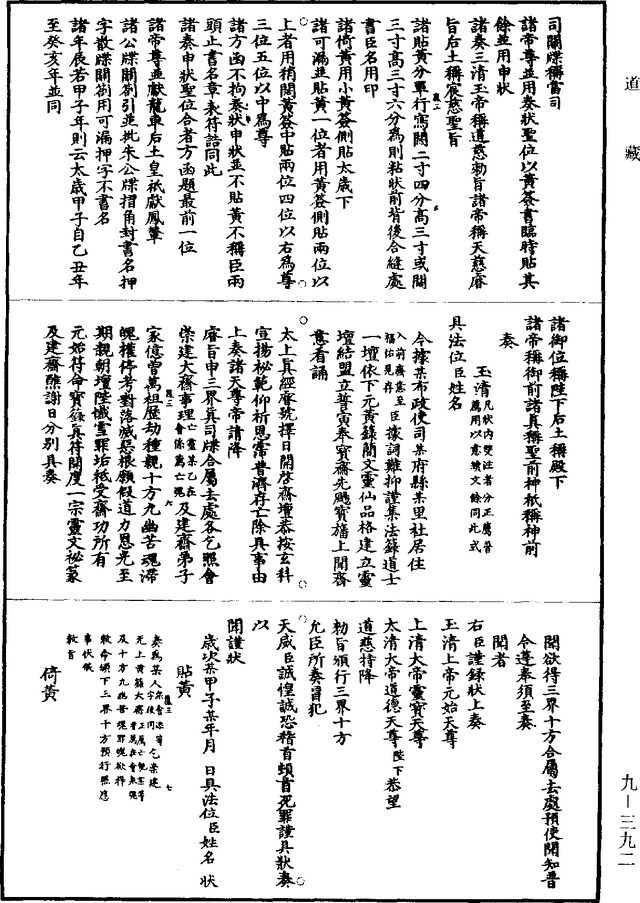 道藏
司關牒稱當司
諸帝尊並用奏狀聖位以黃簽書臨時貼其
餘並用申狀
諸奏三清玉帝稱道慈勅旨諸帝稱天慈睿
旨后土稱宸慈聖旨
諸貼黃分單行寫闊二寸四分高三寸或闊
三寸高三寸六分為則粘狀前背後合縫處
書臣名用印
諸倚黃用小黃簽側貼太歲下
諸可漏並貼黃一位者用黃簽側貼兩位以
上者用稍闊黃簽中貼兩位四位以右為尊
三位五位以中為尊
諸方函不拘奏狀申狀並不貼黃不稱臣兩
頭止書名章表符誥同此
諸奏申狀聖位合者方函題最前一位
諸帝尊並獻龍車后土皇祇獻鳳輦
諸公牒關劄引並批朱公牒摺角封書名押
字散牒關劄用可漏押字不書名
諸年辰若甲子年則云太歲甲子自乙丑年
至癸亥年並同
諸御位稱陛下后土稱殿下
諸帝稱御前諸真稱聖前神祇稱神前
奏
玉清凡狀內雙注者分正薦普薦用以意填文餘同此式
具法位臣姓名
今據某布政使司某府縣某里社居住
入前齋意至臣據詞難抑謹集法錄道士
福佑見存
一壇依下元黃籙簡文靈仙品格建立靈
壇結盟立誓寅奉寶齋先颺寶旛上聞齋
意看誦
太上真經齋號擇日開啓齋壇恭按玄科
宣揚祕範仰祈恩霈普濟存亡除具事由
上奏諸天尊帝請降
睿旨申三界真司牒合屬去處各乞照會
崇建大齋事理亡靈某乙在會係薦亡魂及建齋弟子
家億曾萬祖歷劫種親十方九幽苦魂滯
魄權停考對落滅惡根願假道力恩光至
期親朝壇陛懺雪罪垢祗受齋功所有
元始符命寶籙真符開度一宗靈文祕篆
及建齋醮謝日分別具奏
聞欲得三界十方合屬去處預使聞知普
令遵奉須至奏
聞者
右臣謹錄狀上奏
玉清上帝元始天尊
上清大帝靈寶天尊
太清大帝道德天尊陛下恭望
道慈特降
勅旨頒行三界十方
允臣所奏冒犯
天威臣誠惶誠恐稽首頓首死罪謹具狀奏
以
聞謹狀
歲次某甲子某年月 日具法位臣姓名 狀
貼黃
奏為某人
乞崇建
無上黃籙大齋
及十方九幽苦魂罪魄欲得
敕命頒下三界十方預行照應
事伏候
敕旨
倚黃
九－三九二